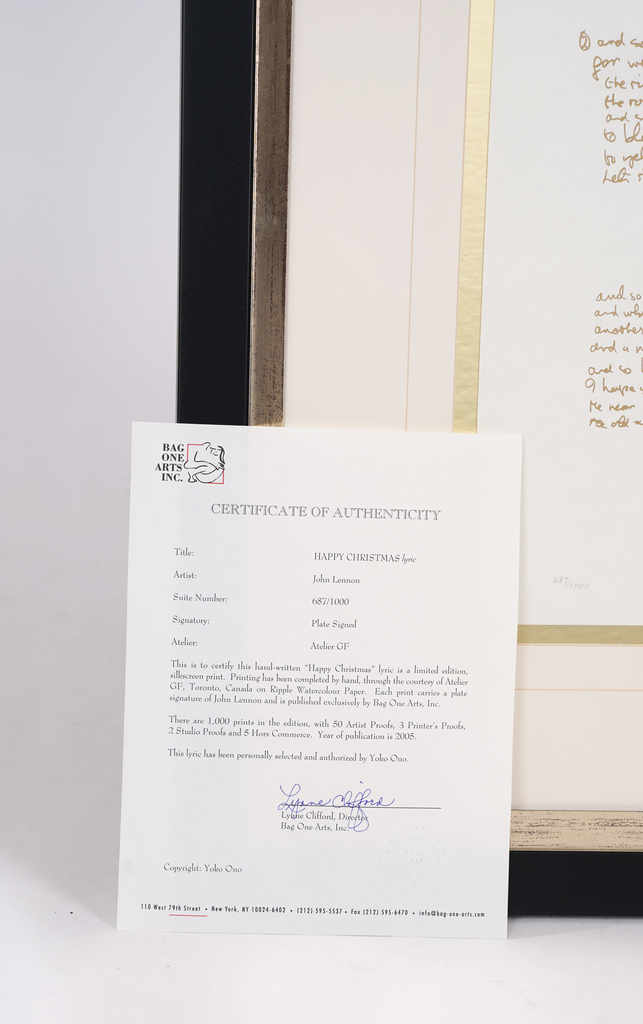 ② and
for
the
the
and
to
to
and so
and
another
and a
and so
I hope
the near
the old
687/1000
BAG
ONE
ARTS
INC.
CERTIFICATE OF AUTHENTICITY
Title: HAPPY CHRISTMAS lyric
Artist: John Lennon
Suite Number: 687/1000
Signatory: Plate Signed
Atelier: Atelier GF
This is to certify this hand-written "Happy Christmas" lyric is a limited edition,
silkscreen print. Printing has been completed by hand, through the courtesy of Atelier
GF, Toronto, Canada on Ripple Watercolour Paper. Each print carries a plate
signature of John Lennon and is published exclusively by Bag One Arts, Inc.
There are 1,000 prints in the edition, with 50 Artist Proofs, 3 Printer's Proofs,
2 Studio Proofs and 5 Hors Commerce. Year of publication is 2005.
This lyric has been personally selected and authorized by Yoko Ono.
Lynne Clifford
Lynne Clifford, Director
Bag One Arts, Inc.
Copyright: Yoko Ono
110 West 79th Street • New York, NY 10024-6402 • (212) 595-5537 • Fax (212) 595-6470 • info@bag-one-arts.com